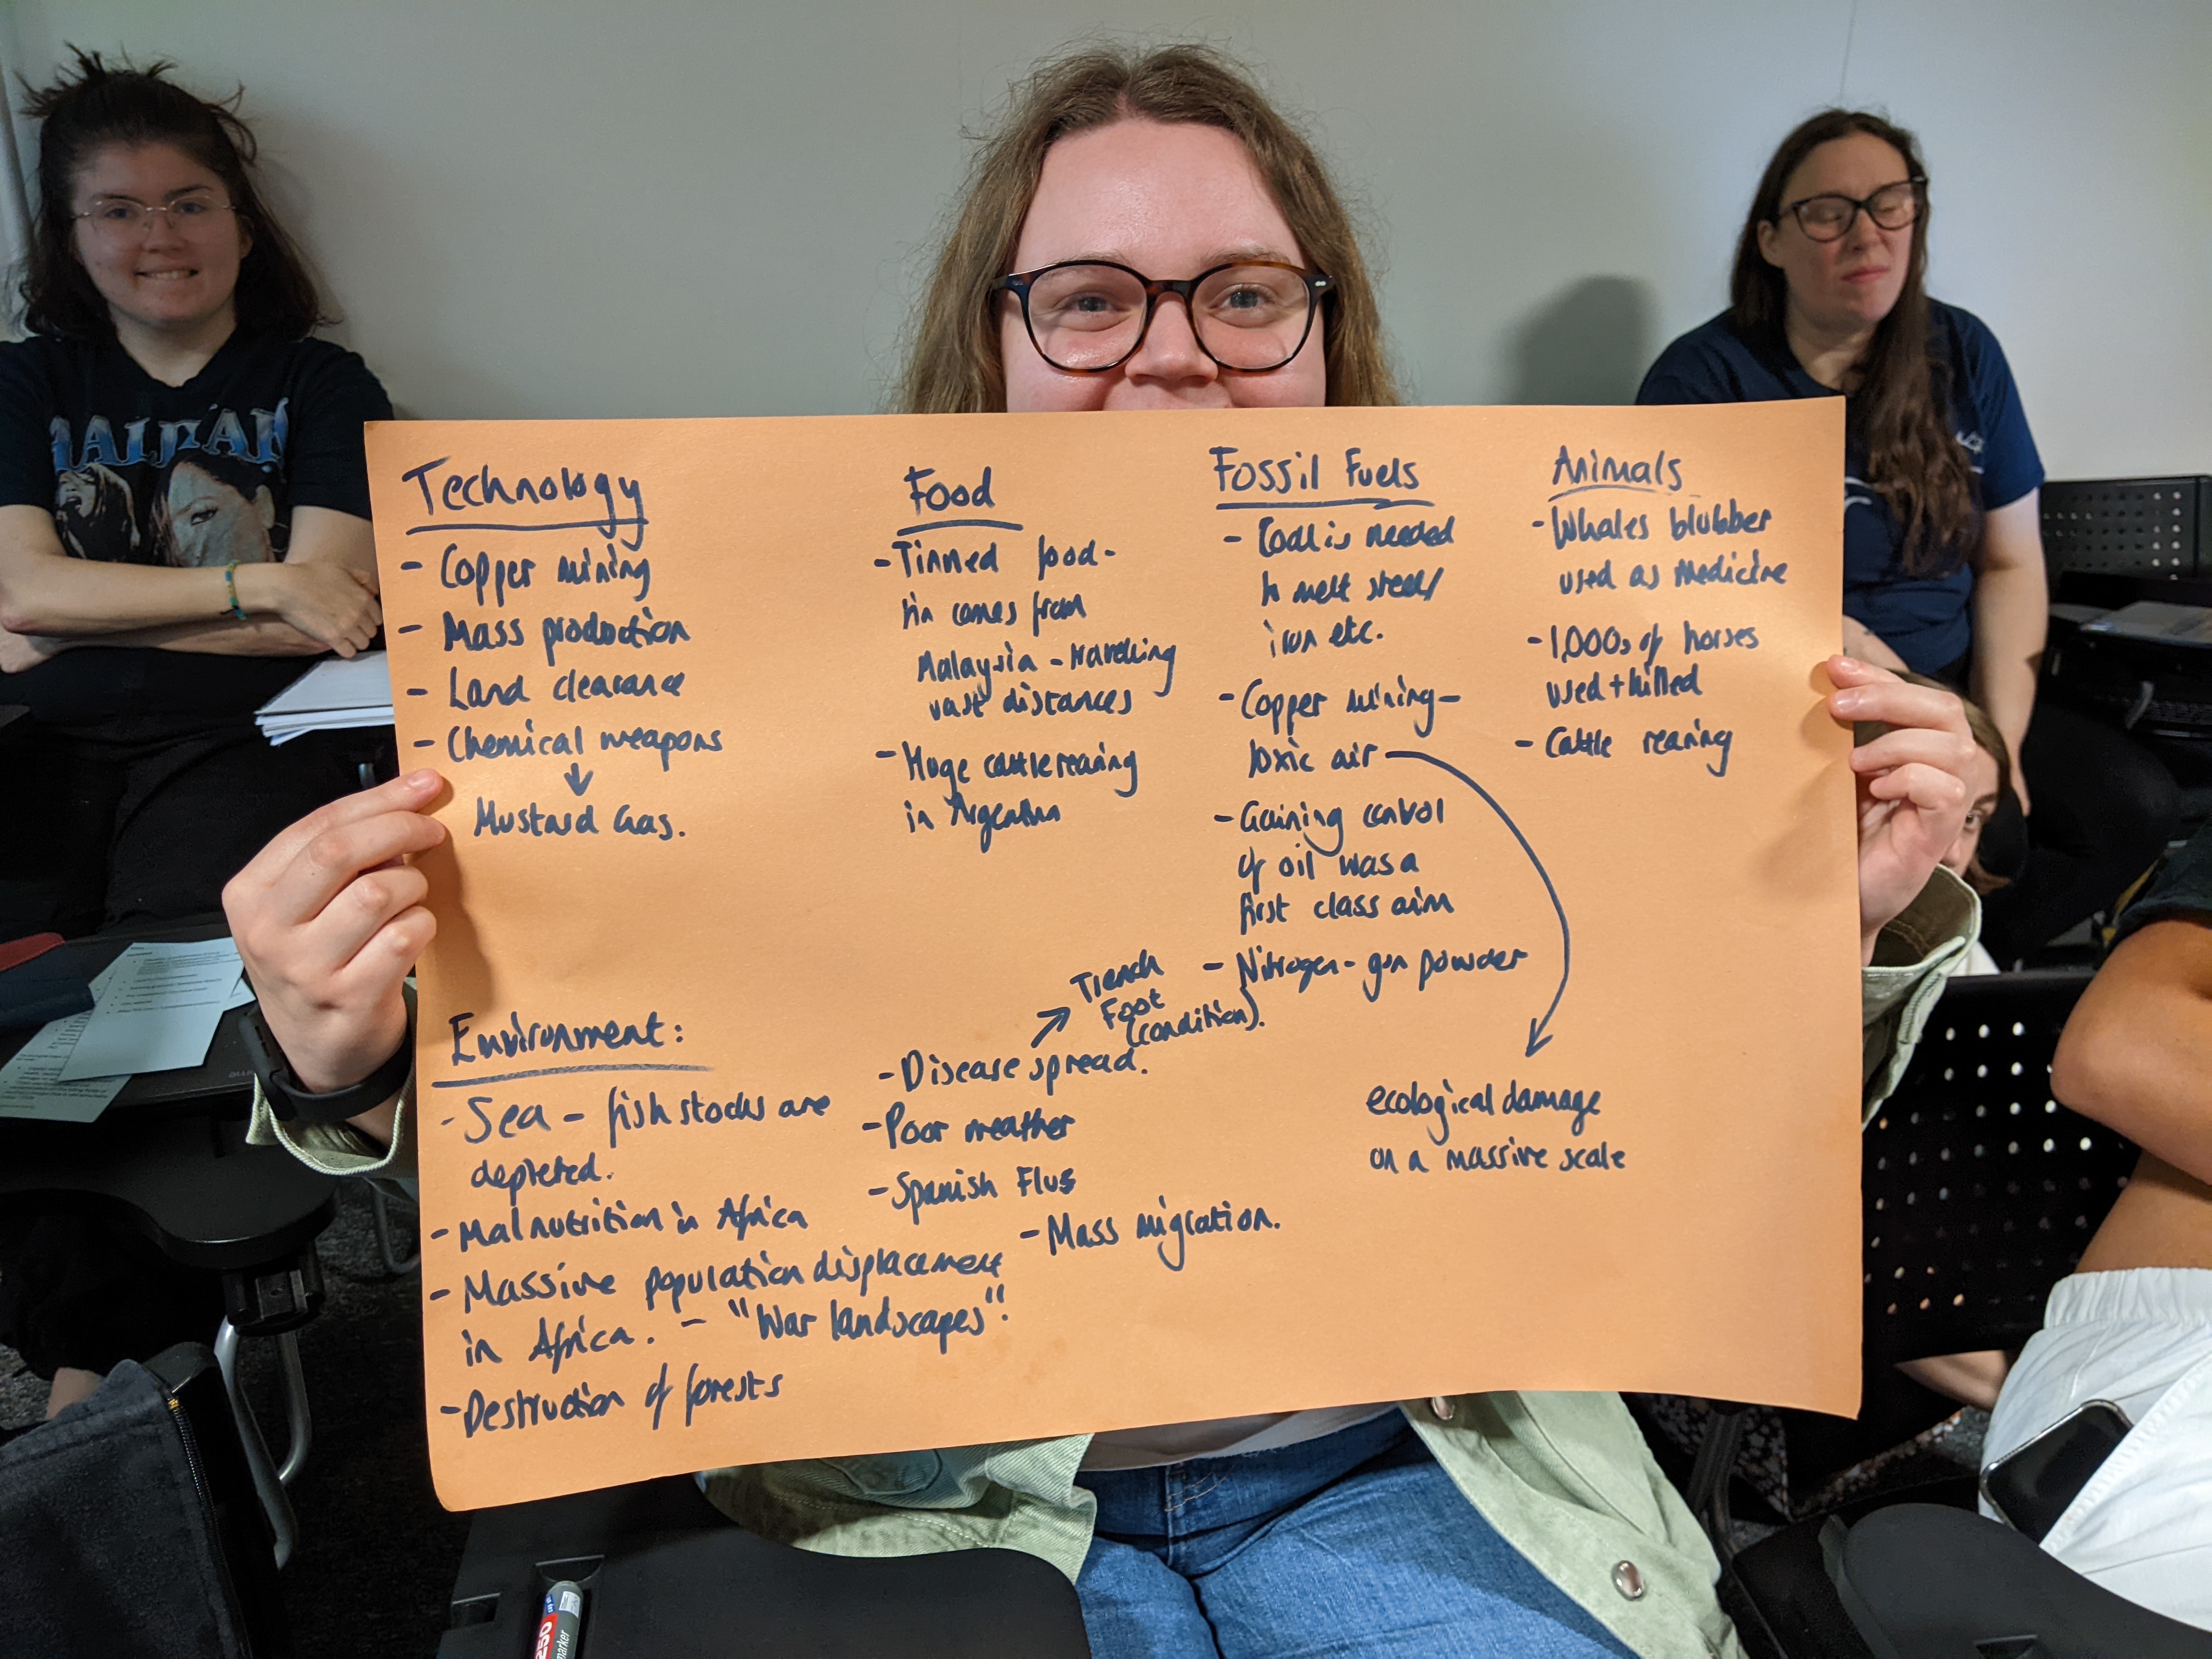 Technology
- Copper mining
- Mass production
- Land clearance
- Chemical weapons
↓
Mustard Gas.
Food
- Tinned food -
tin comes from
Malaysia - travelling
vast distances
- Huge cattle rearing
in Argentina
Fossil Fuels
- Coal is needed
to melt steel/
iron etc.
- Copper mining -
toxic air
- Gaining control
of oil was a
first class aim
- Nitrogen - gun powder
ecological damage
on a massive scale
Animals
- Whales blubber
used as medicine
- 1,000s of horses
used + killed
- Cattle rearing
Environment:
- Sea - fish stocks are
depleted.
- Malnutrition in Africa
- Massive population displacement
in Africa. - "War landscapes".
- Destruction of forests
Trench
Foot
(condition).
- Disease spread.
- Poor weather
- Spanish Flu
- Mass migration.
250
marker